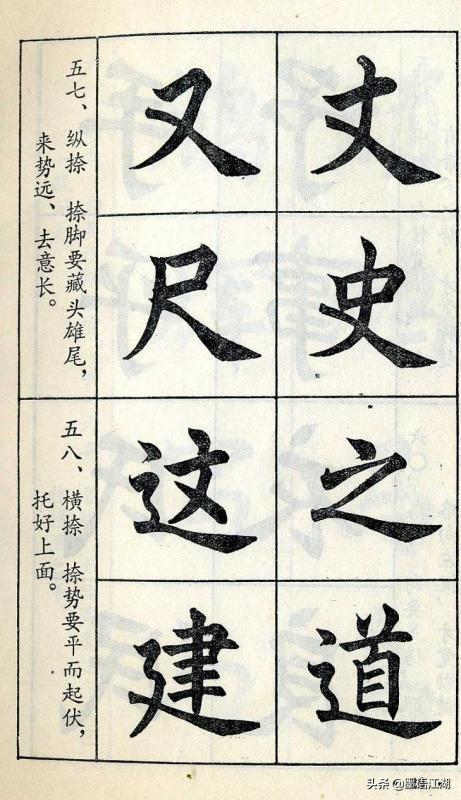 五七、纵捺 捺脚要藏头雄尾，
来势远、去意长。
丈又
史尺
五八、横捺 捺势要平而起伏，
托好上面。
之这
道建
头条 @墨香江湖